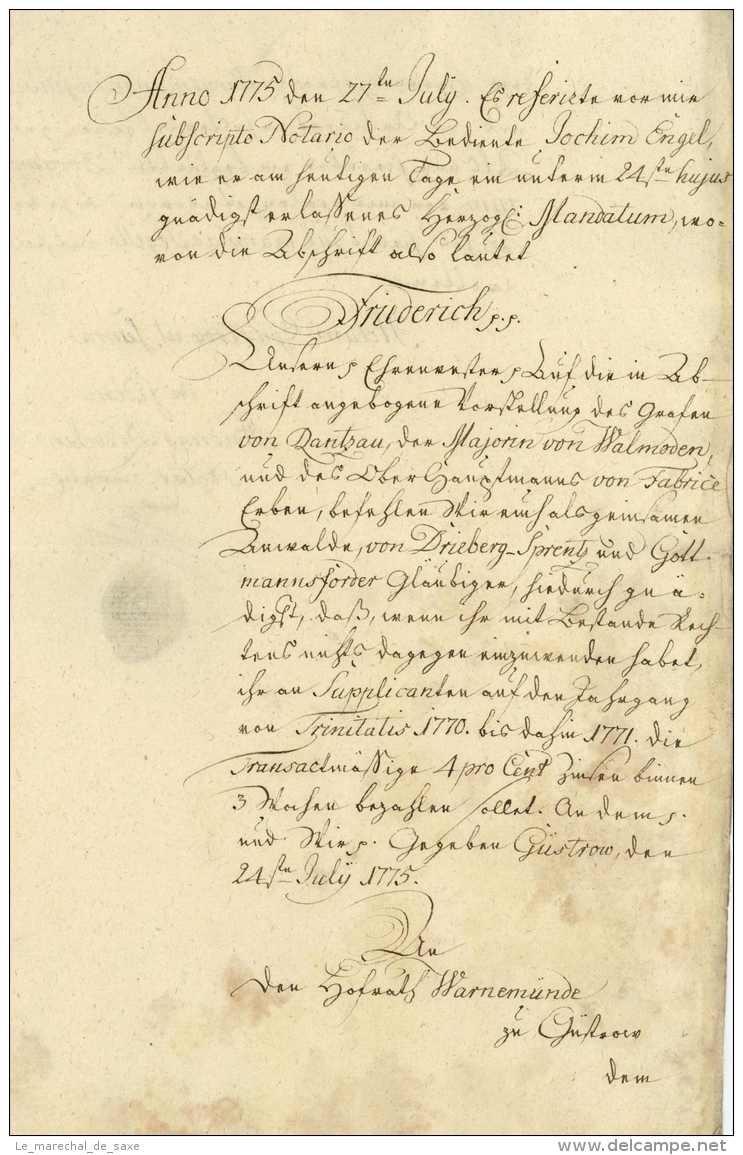 Anno 1775 den 27tn July. Es referirte vor mir
subscripto Notario der Bediente Jochim Engel,
wie er am heutigen Tage ein unterm 24stn hujus
gnädigst erlassenes Herzogl: Mandatum, wo-
von die Abschrift also lautet
Friederich p.p.
Unsern p Ehrenvester p Auf die in Ab-
schrift angebogene Vorstellung des Grafen
von Rantzau, der Majorin von Walmoden,
und des Ober Hauptmanns von Fabrice
Erben, befehlen Wir euch als gemeinsamen
Anwalde, von Drieberg-Sprentz und Gott-
mannsförder Gläubiger, hiedurch gnä-
digst, daß, wenn ihr mit Bestande Rech-
tens nichts dagegen einzuwenden habet,
ihr an Supplicanten auf den Jahrgang
von Trinitatis 1770. bis dahin 1771. die
Transactmässige 4 pro Cent Zinsen binnen
3 Wochen bezahlen sollet. An dem p.
und Wir p. Gegeben Güstrow, den
24stn July 1775.
An
den Hofrath Warnemünde
zu Güstrow
dem
Le_marechal_de_saxe
delcampe.net